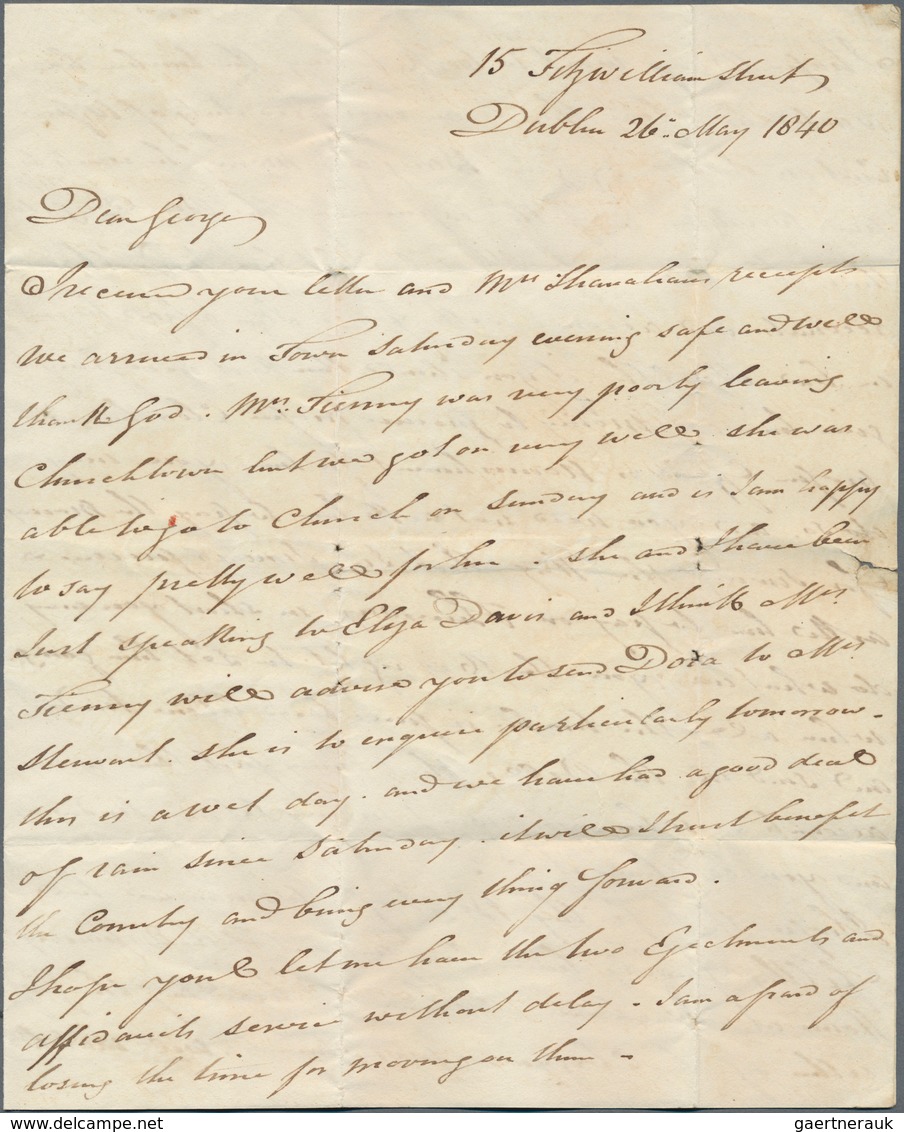 15 Fitzwilliam Street
Dublin 26th May 1840
Dear George
I received your letter and Mrs Shanahans receipts
We arrived in Town Saturday evening safe and well
thank God. Mrs. Tierney was very poorly leaving
Churchtown but we got on very well. she was
able to go to Church on Sunday and is I am happy
to say pretty well for her. she and I have been
Just speaking to Eliza Davis and I think Mrs.
Tierney will advise you to send Dora to Mrs.
Stewart. she is to enquire particularly tomorrow.
this is a wet day. and we have had a good deal
of rain since Saturday. it will I trust benefit
the Country and bring every thing forward.
I hope you'l let me have the two Ejectments and
affidavits service without delay. I am afraid of
losing the time for moving on them.
gaertnerauk